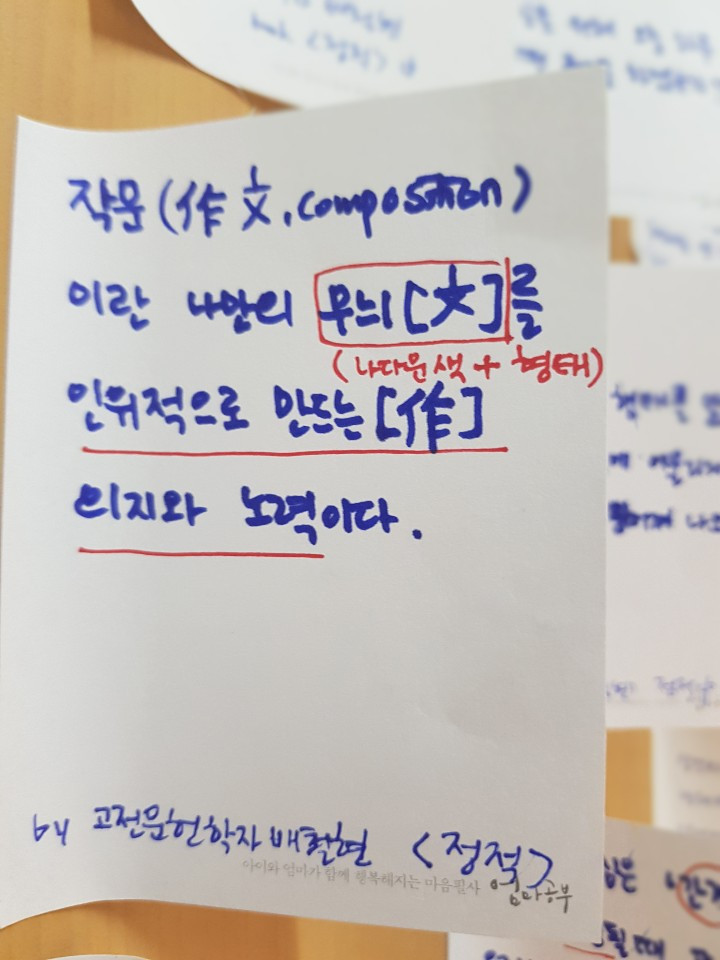 작문(作文, composition)
이란 나만의 무늬[文]를
(나다운 색 + 형태)
인위적으로 만드는[作]
의지와 노력이다.
by 고전문헌학자 배철현 <정적>
아이와 엄마가 함께 행복해지는 마음필사 엄마공부